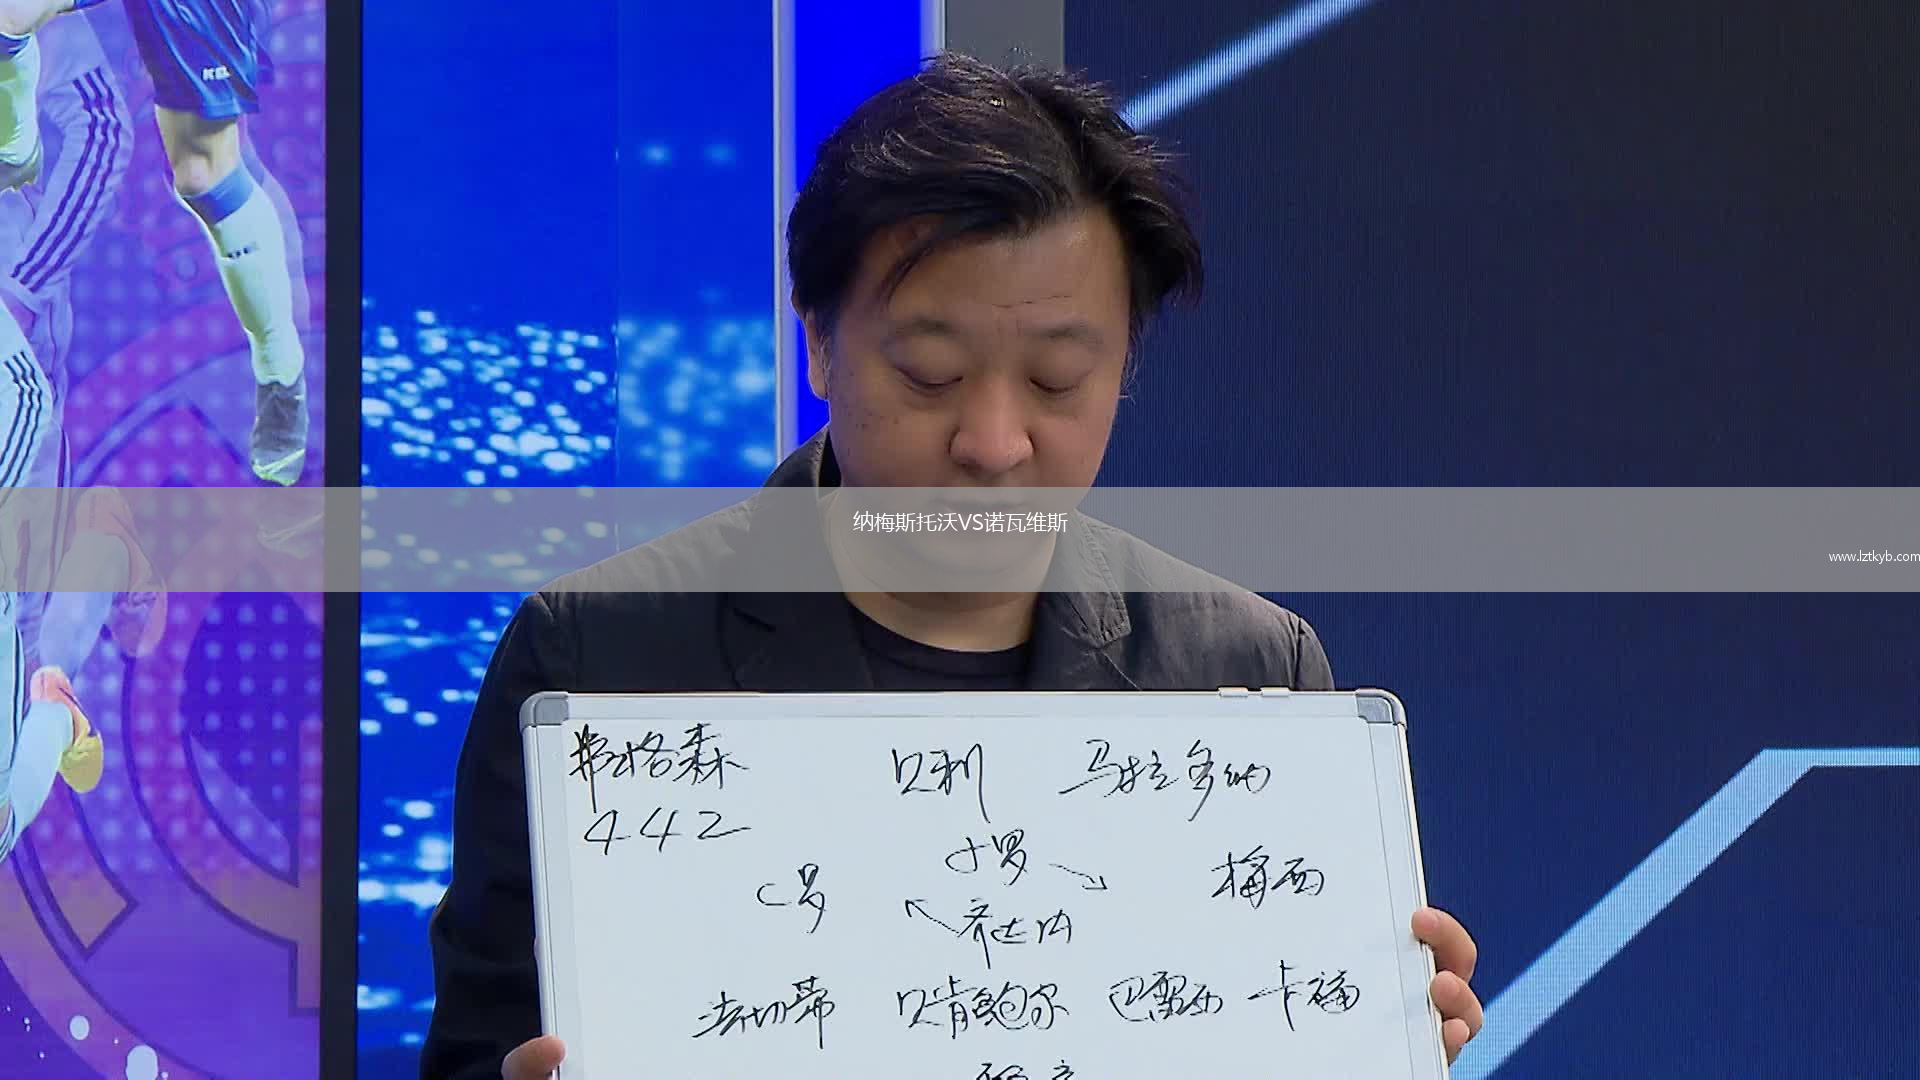 纳梅斯托沃VS诺瓦维斯
www.lztkyb.com
弗格森 贝利 马拉多纳
442
小罗
C罗 梅西
齐达内
法切蒂 贝肯鲍尔 巴雷西 卡福